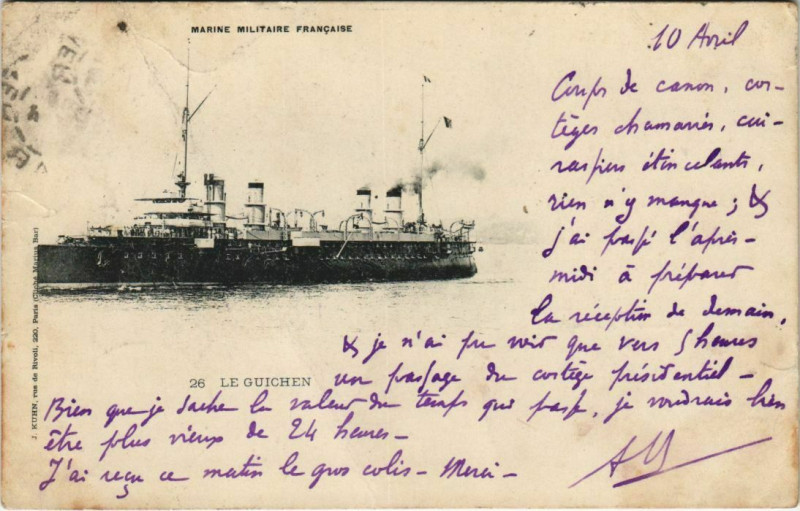 MARINE MILITAIRE FRANÇAISE
10 Avril
Coups de canon, cor-
tèges chamarrés, cui-
rassiers étincelants,
rien n'y manque ; &
j'ai passé l'après-
midi à préparer
la réception de demain,
& je n'ai pu voir que vers 5 heures
un passage du cortège présidentiel -
Bien que je sache la valeur du temps qui passe, je voudrais bien
être plus vieux de 24 heures -
J'ai reçu ce matin le gros colis - Merci -
26 LE GUICHEN
J. KUHN, rue de Rivoli, 220, Paris (Cliché Marius Bar)